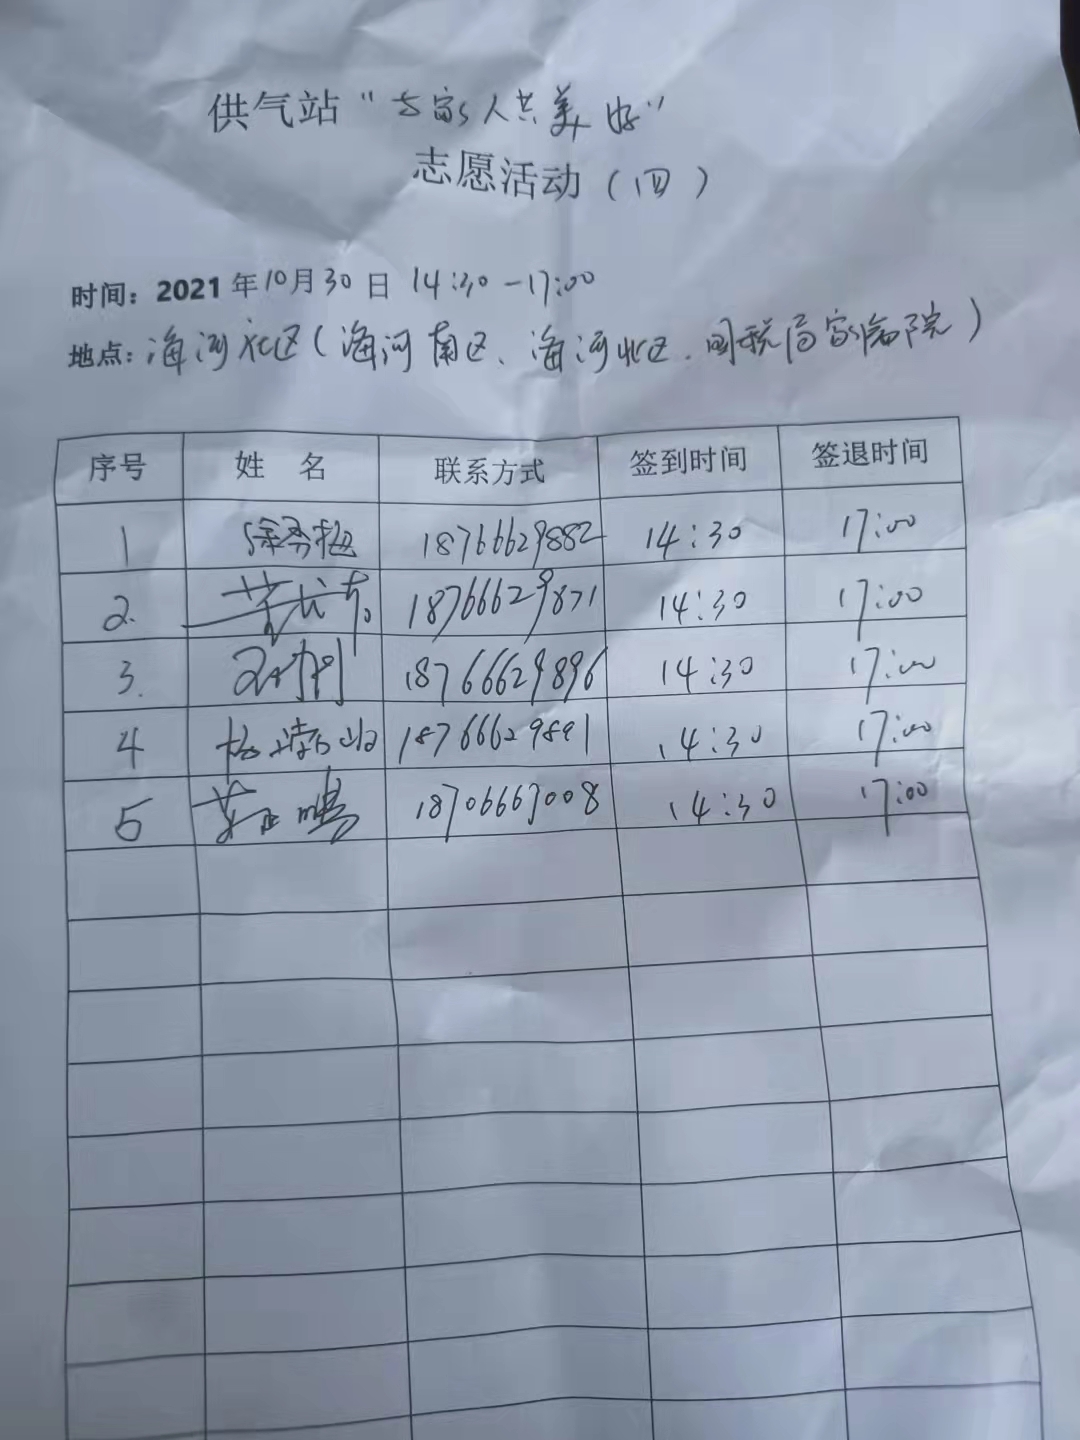 供气站"万家人共美好"
志愿活动(四)
时间：2021年10月30日 14:30-17:00
地点：海河社区(海河南区、海河北区、国税局家属院)
序号 姓 名 联系方式 签到时间 签退时间
1 18766629882 14:30 17:00
2. 18766629871 14:30 17:00
3. 18766629896 14:30 17:00
4 18766629891 14:30 17:00
5 18706667008 14:30 17:00